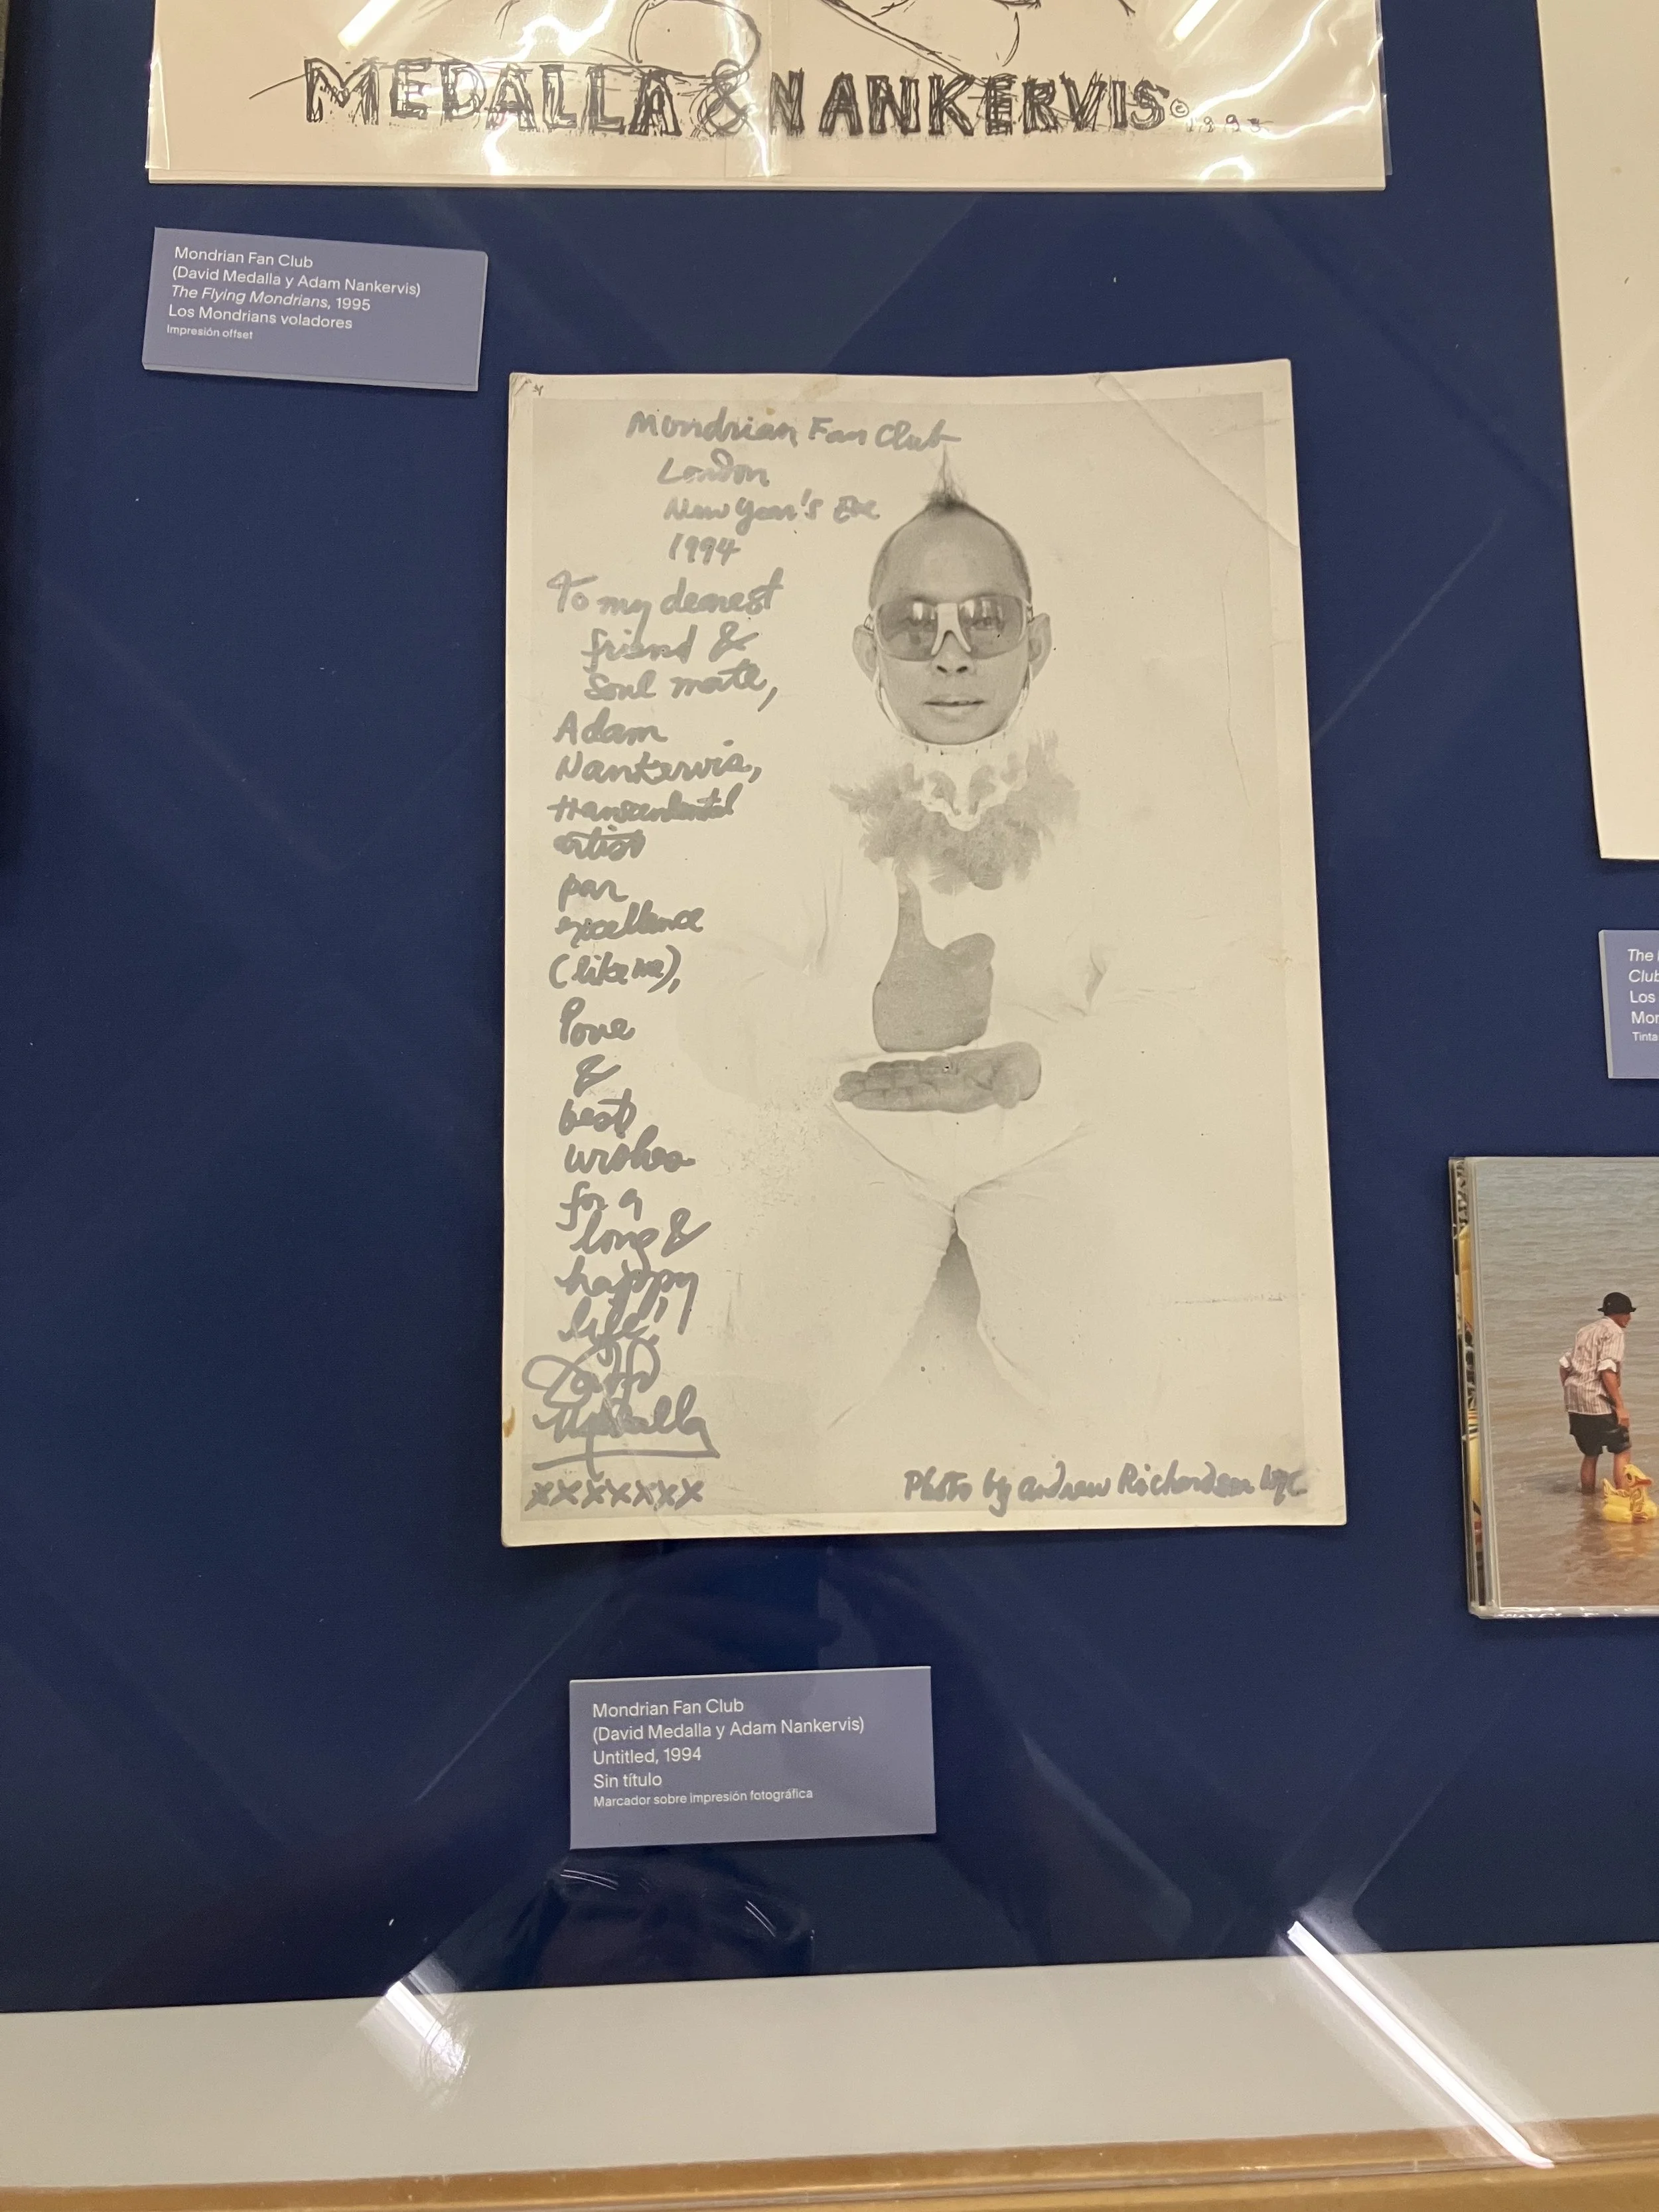 MEDALLA & NANKERVIS © 1995
Mondrian Fan Club
(David Medalla y Adam Nankervis)
The Flying Mondrians, 1995
Los Mondrians voladores
Impresión offset
Mondrian Fan Club
London
New Year's Eve
1994
To my dearest
friend &
soul mate,
Adam
Nankervis,
transcendental
artist
par
excellence
(like me),
love
&
best
wishes
for a
long &
happy
life!
David
Medalla
xxxxxxx
Photo by Andrew Richardson NYC
The
Club
Los
Mon
Tinta
Mondrian Fan Club
(David Medalla y Adam Nankervis)
Untitled, 1994
Sin título
Marcador sobre impresión fotográfica